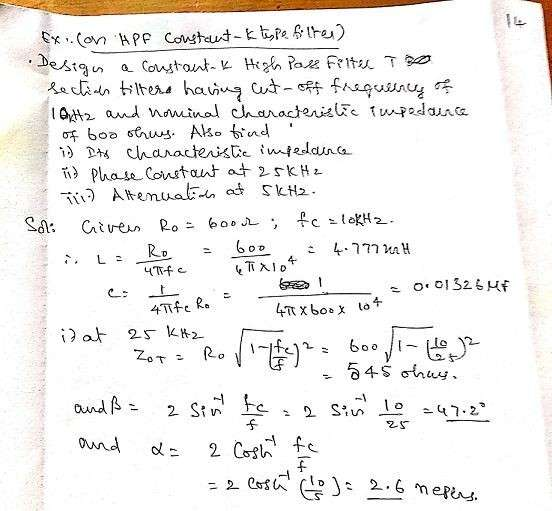 14
Ex:. (on HPF Constant-K type filter)
. Design a Constant-K High Pass Filter T
section filters having cut-off frequency of
10kHz and nominal characteristic impedance
of 600 ohms. Also find
i) Its characteristic impedance
ii) Phase Constant at 25KHz
iii) Attenuation at 5KHz.
Sol: Given R₀ = 600Ω ; fc = 10KHz.
∴ L = R₀/4πfc = 600/4π×10⁴ = 4.777mH
C = 1/4πfc R₀ = 1/4π×600×10⁴ = 0.01326 μF
i) at 25 KHz
Z₀T = R₀ √1-(fc/f)² = 600 √1-(10/25)²
= 545 ohms.
and β = 2 Sin⁻¹ fc/f = 2 Sin⁻¹ 10/25 = 47.2°
and α = 2 Cosh⁻¹ fc/f
= 2 Cosh⁻¹ (10/5) = 2.6 nepers.